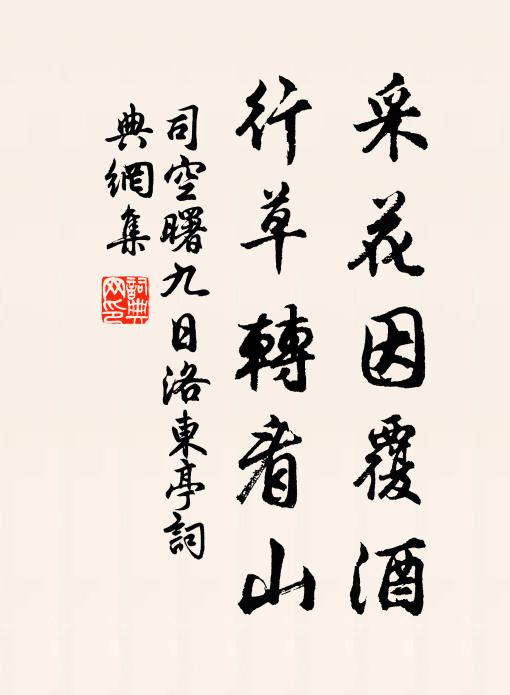 采花因覆酒
行草轉看山
司空曙九日洛東亭詞
典網集
詞典
网印